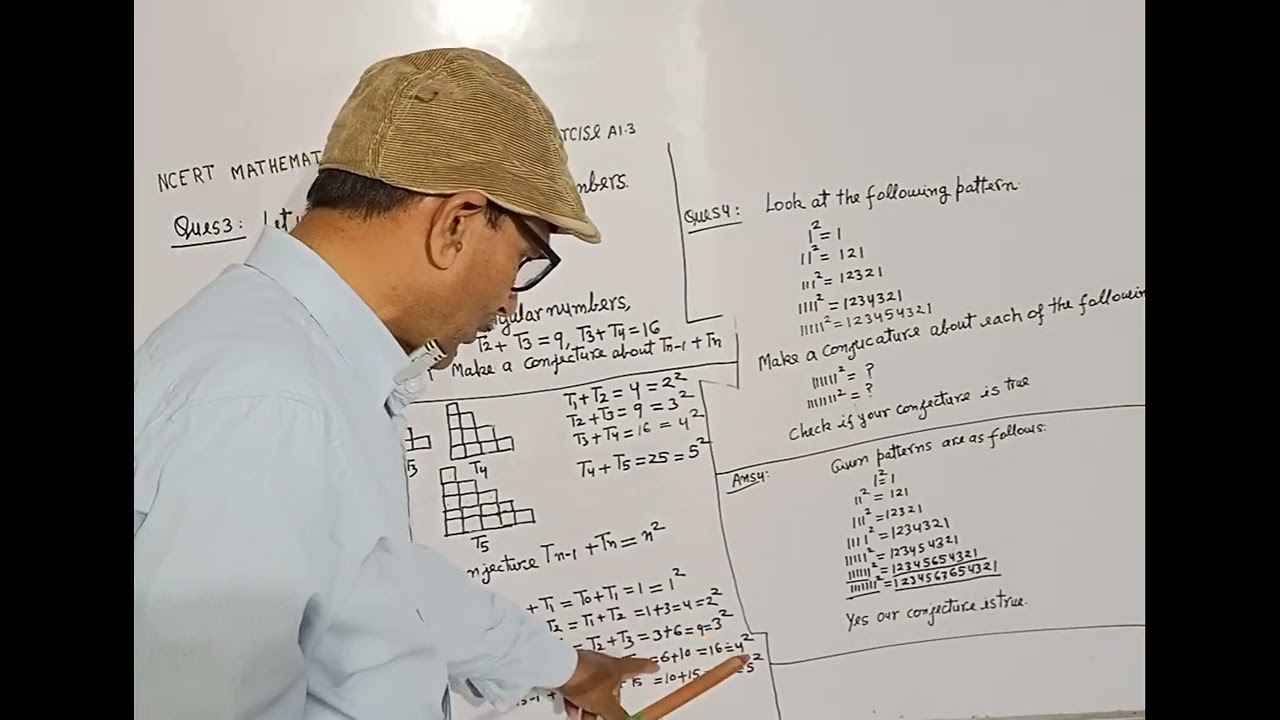 NCERT MATHEMAT
RCISE A1.3
mbers.
Ques3: Let
ngular numbers,
T2+ T3 = 9, T3+ T4 = 16
Make a conjecture about Tn-1 + Tn
T1+T2 = 4 = 2²
T2+T3 = 9 = 3²
T3+T4 = 16 = 4²
T4+T5 = 25 = 5²
T3
T4
T5
njecture Tn-1 + Tn = n²
+ T1 = T0+T1 = 1 = 1²
T2 = T1+T2 = 1+3=4=2²
= T2+T3 = 3+6=9=3²
=6+10 =16=4²
T5 =10+15 =5²
Ques4: Look at the following pattern:
1² = 1
11² = 121
111² = 12321
1111² = 1234321
11111² = 123454321
Make a conjucature about each of the followin
111111² = ?
1111111² = ?
Check if your conjecture is true
Ans4: Given patterns are as follows:
1²=1
11² = 121
111² =12321
1111² =1234321
11111² =123454321
111111² =12345654321
1111111² =1234567654321
Yes our conjecture is true.